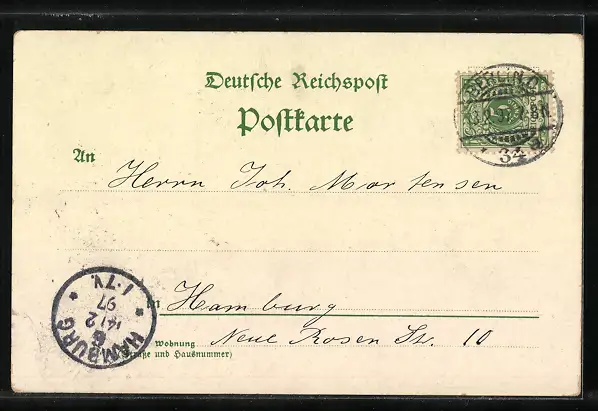 Deutsche Reichspost
Postkarte
BERLIN
97
34
An
Herrn Joh. Mortensen
in Hamburg
Wohnung
(Straße und Hausnummer)
Neue Rosen St. 10
HAMBURG
6
14/2
97
1-7V.